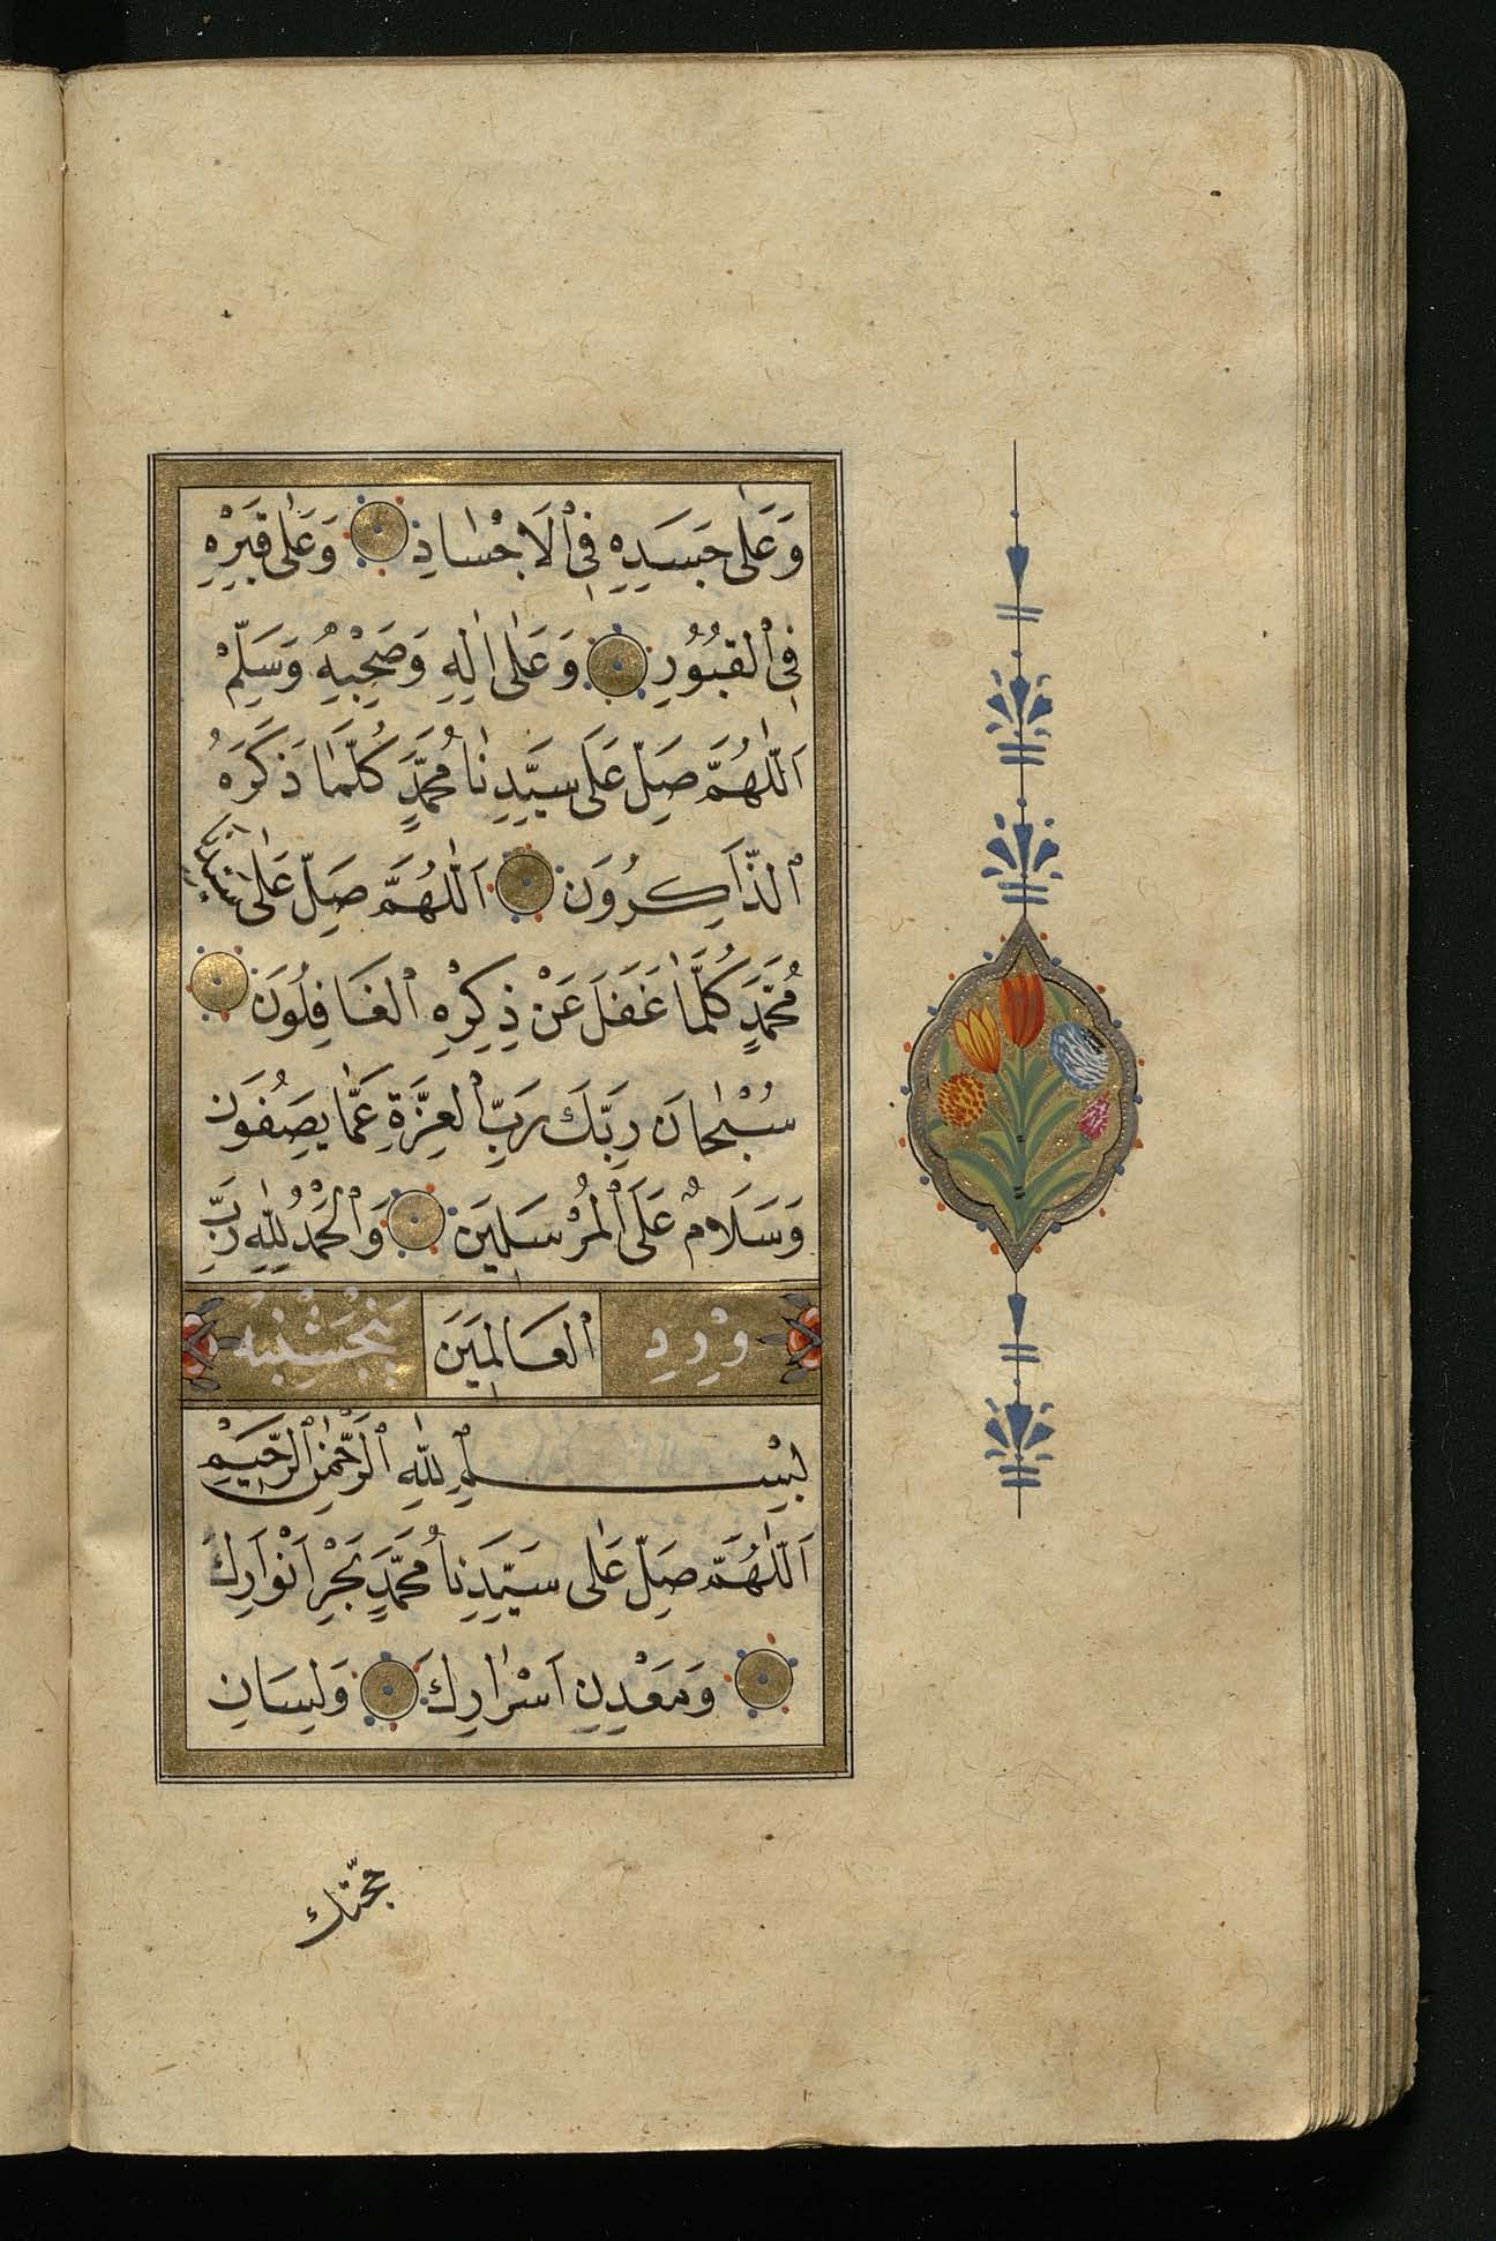 وَعَلٰى جَسَدِهِ فِي الْاَجْسَادِ وَعَلٰى قَبْرِهِ
فِي الْقُبُورِ وَعَلٰى اٰلِهِ وَصَحْبِهِ وَسَلِّمْ
اَللّٰهُمَّ صَلِّ عَلَى سَيِّدِنَا مُحَمَّدٍ كُلَّمَا ذَكَرَهُ
الذَّاكِرُونَ اَللّٰهُمَّ صَلِّ عَلٰى سَيِّدِنَا
مُحَمَّدٍ كُلَّمَا غَفَلَ عَنْ ذِكْرِهِ الْغَافِلُونَ
سُبْحَانَ رَبِّكَ رَبِّ الْعِزَّةِ عَمَّا يَصِفُونَ
وَسَلَامٌ عَلَى الْمُرْسَلِينَ وَالْحَمْدُ لِلّٰهِ رَبِّ
وِرْدِ الْعَالَمِينَ پَنْجشَنْبه
بِسْمِ اللّٰهِ الرَّحْمٰنِ الرَّحِيمِ
اَللّٰهُمَّ صَلِّ عَلٰى سَيِّدِنَا مُحَمَّدٍ بَحْرِ اَنْوَارِكَ
وَمَعْدِنِ اَسْرَارِكَ وَلِسَانِ
حجّتك